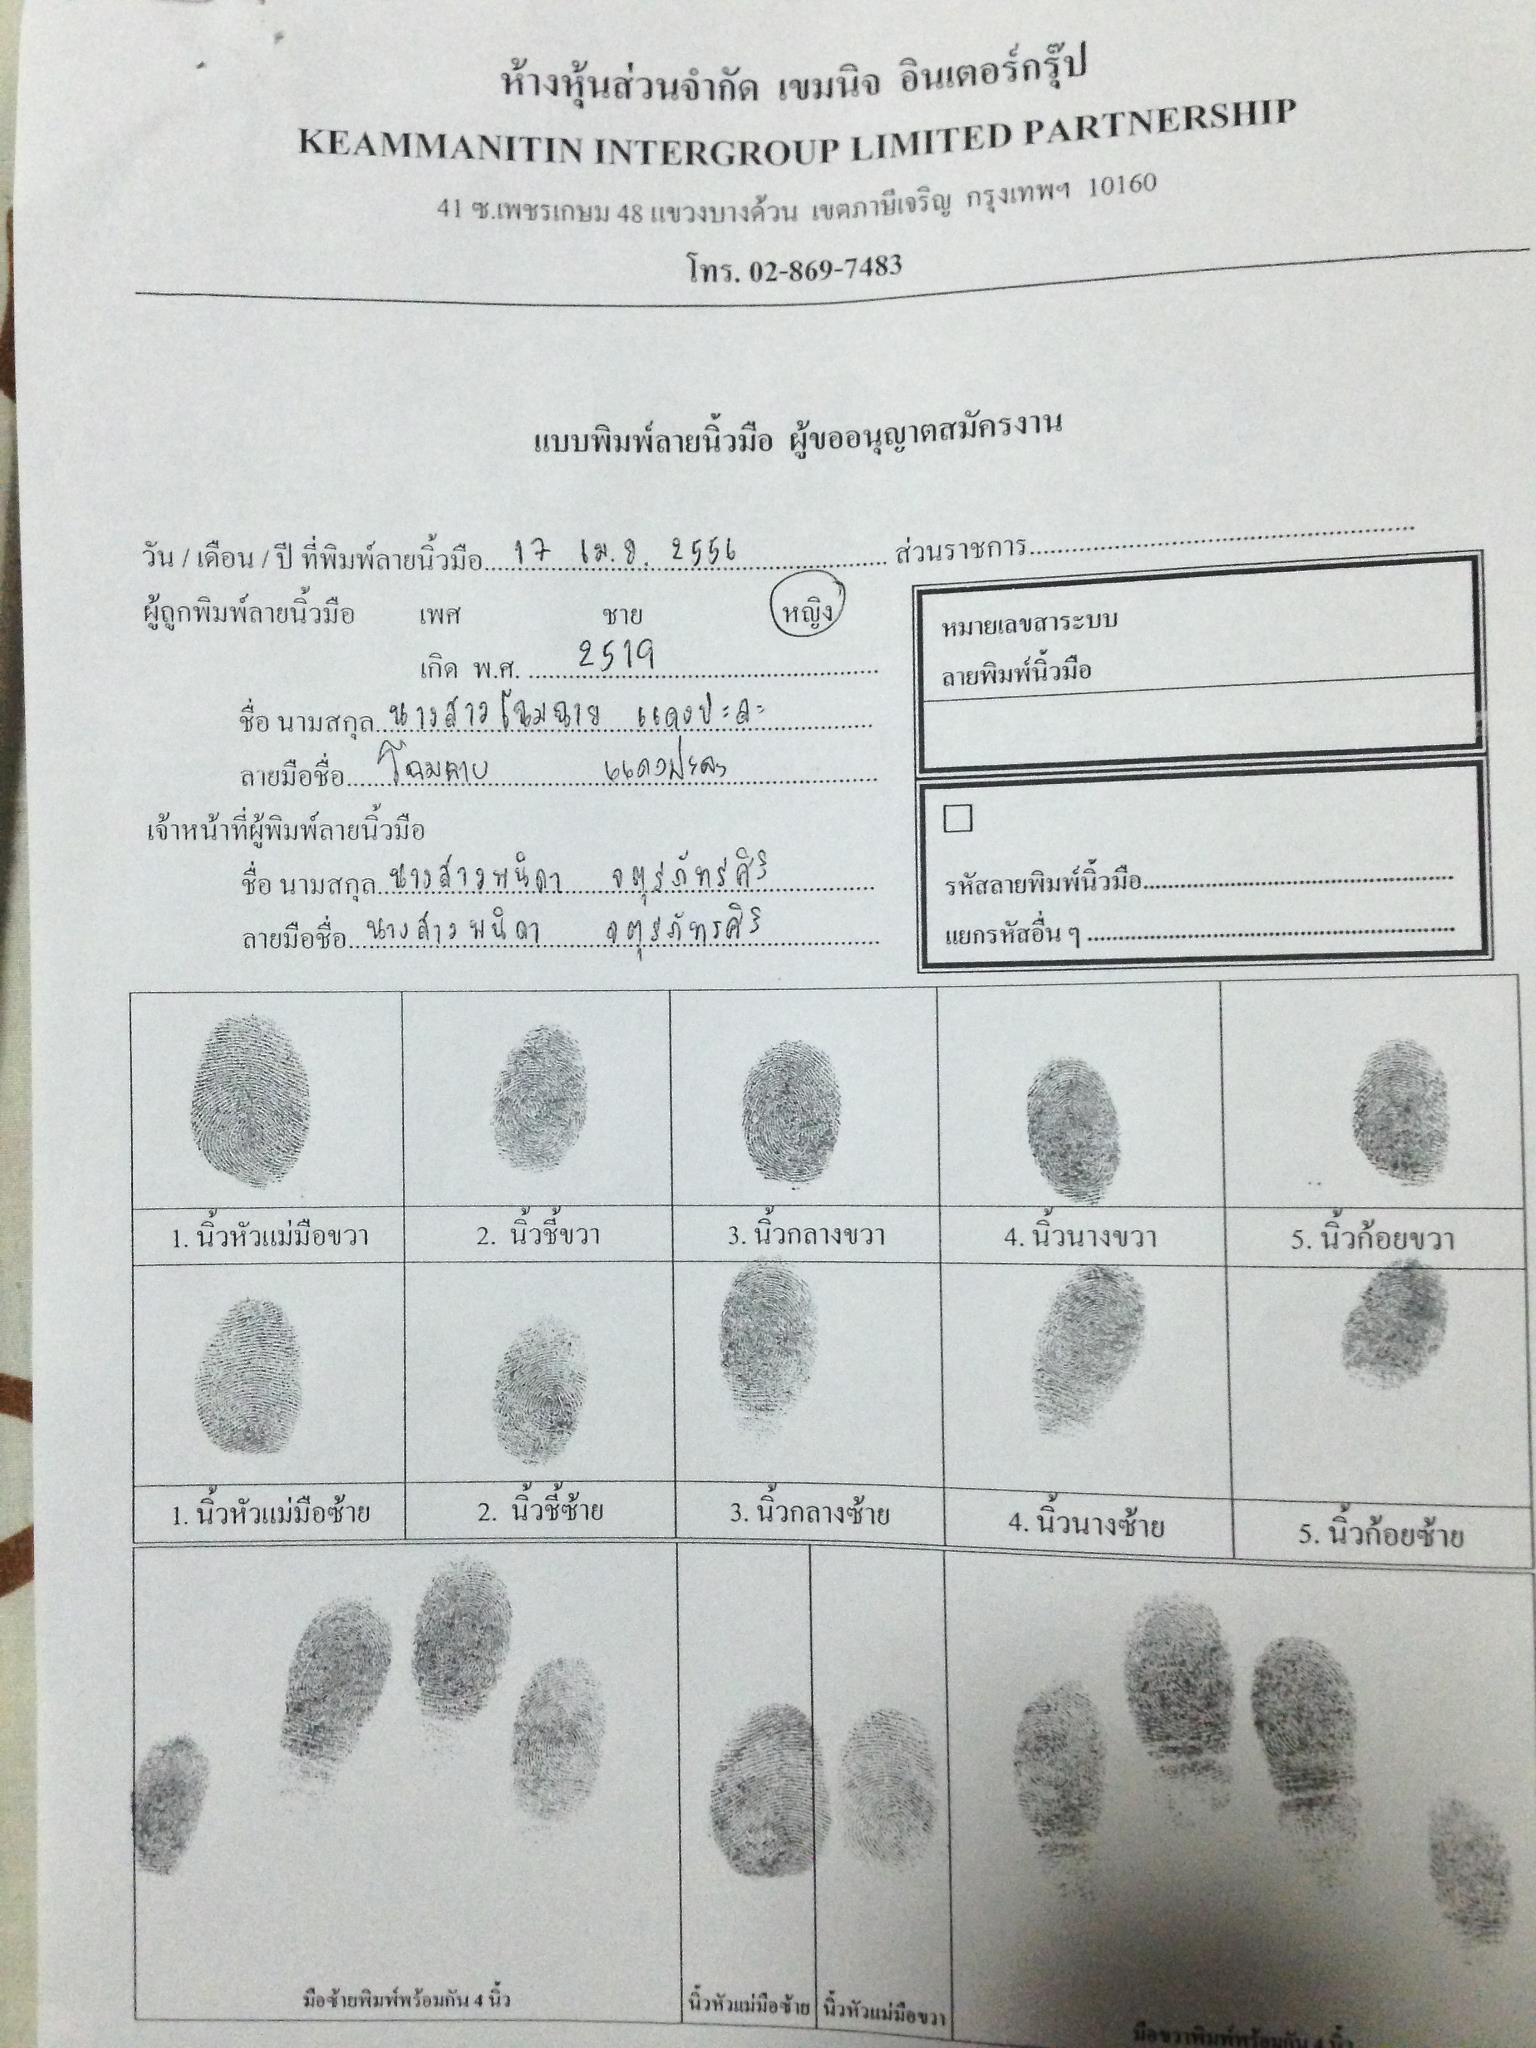 ห้างหุ้นส่วนจำกัด เขมนิจ อินเตอร์กรุ๊ป
KEAMMANITIN INTERGROUP LIMITED PARTNERSHIP
41 ซ.เพชรเกษม 48 แขวงบางด้วน เขตภาษีเจริญ กรุงเทพฯ 10160
โทร. 02-869-7483
แบบพิมพ์ลายนิ้วมือ ผู้ขออนุญาตสมัครงาน
วัน / เดือน / ปี ที่พิมพ์ลายนิ้วมือ 17 เม.ย. 2556 ส่วนราชการ
ผู้ถูกพิมพ์ลายนิ้วมือ เพศ ชาย หญิง
เกิด พ.ศ. 2519
ชื่อ นามสกุล นางสาวโฉมฉาย แดงปะละ
ลายมือชื่อ แดงปะละ
เจ้าหน้าที่ผู้พิมพ์ลายนิ้วมือ
ชื่อ นามสกุล นางสาวพนิดา จตุรภัทรศิริ
ลายมือชื่อ นางสาวพนิดา จตุรภัทรศิริ
หมายเลขสาระบบ
ลายพิมพ์นิ้วมือ
รหัสลายพิมพ์นิ้วมือ
แยกรหัสอื่น ๆ
1. นิ้วหัวแม่มือขวา 2. นิ้วชี้ขวา 3. นิ้วกลางขวา 4. นิ้วนางขวา 5. นิ้วก้อยขวา
1. นิ้วหัวแม่มือซ้าย 2. นิ้วชี้ซ้าย 3. นิ้วกลางซ้าย 4. นิ้วนางซ้าย 5. นิ้วก้อยซ้าย
มือซ้ายพิมพ์พร้อมกัน 4 นิ้ว นิ้วหัวแม่มือซ้าย นิ้วหัวแม่มือขวา มือขวาพิมพ์พร้อมกัน 4 นิ้ว